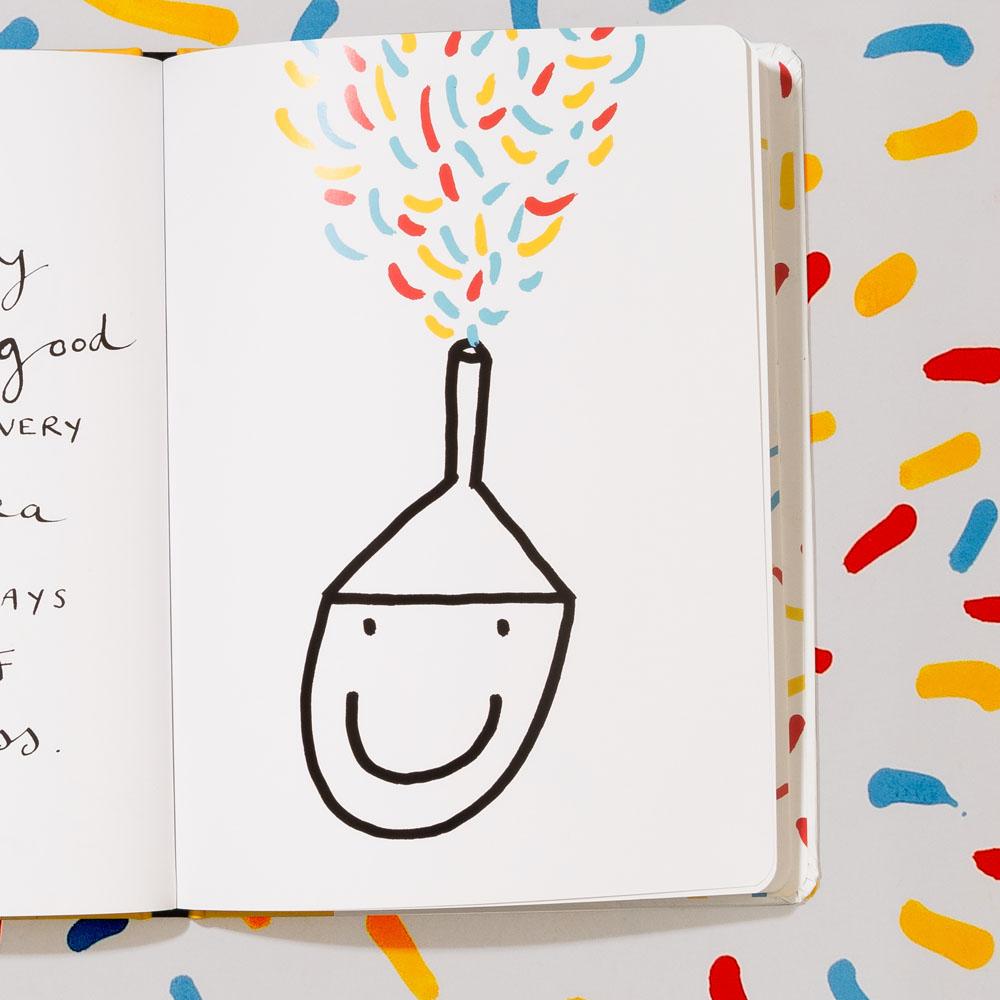 y
good
VERY
ea
AYS
F
ss.